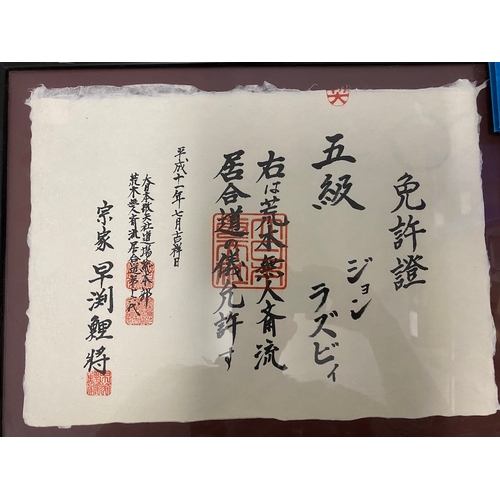 免許證
五級
ジョン
ラズビィ
右は荒木無人斎流
居合道の儀免許す
平成十一年七月吉祥日
大日本敬天社道場荒木部
荒木無人斎流居合道第十七代
宗家 早渕鯉将